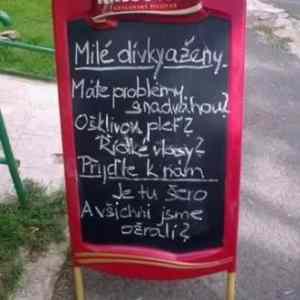 Milé dívky a ženy
Máte problémy
s nadváhou?
Ošklivou pleť?
Řídké vlasy?
Přijďte k nám
Je tu šero
A všichni jsme
ožralí?